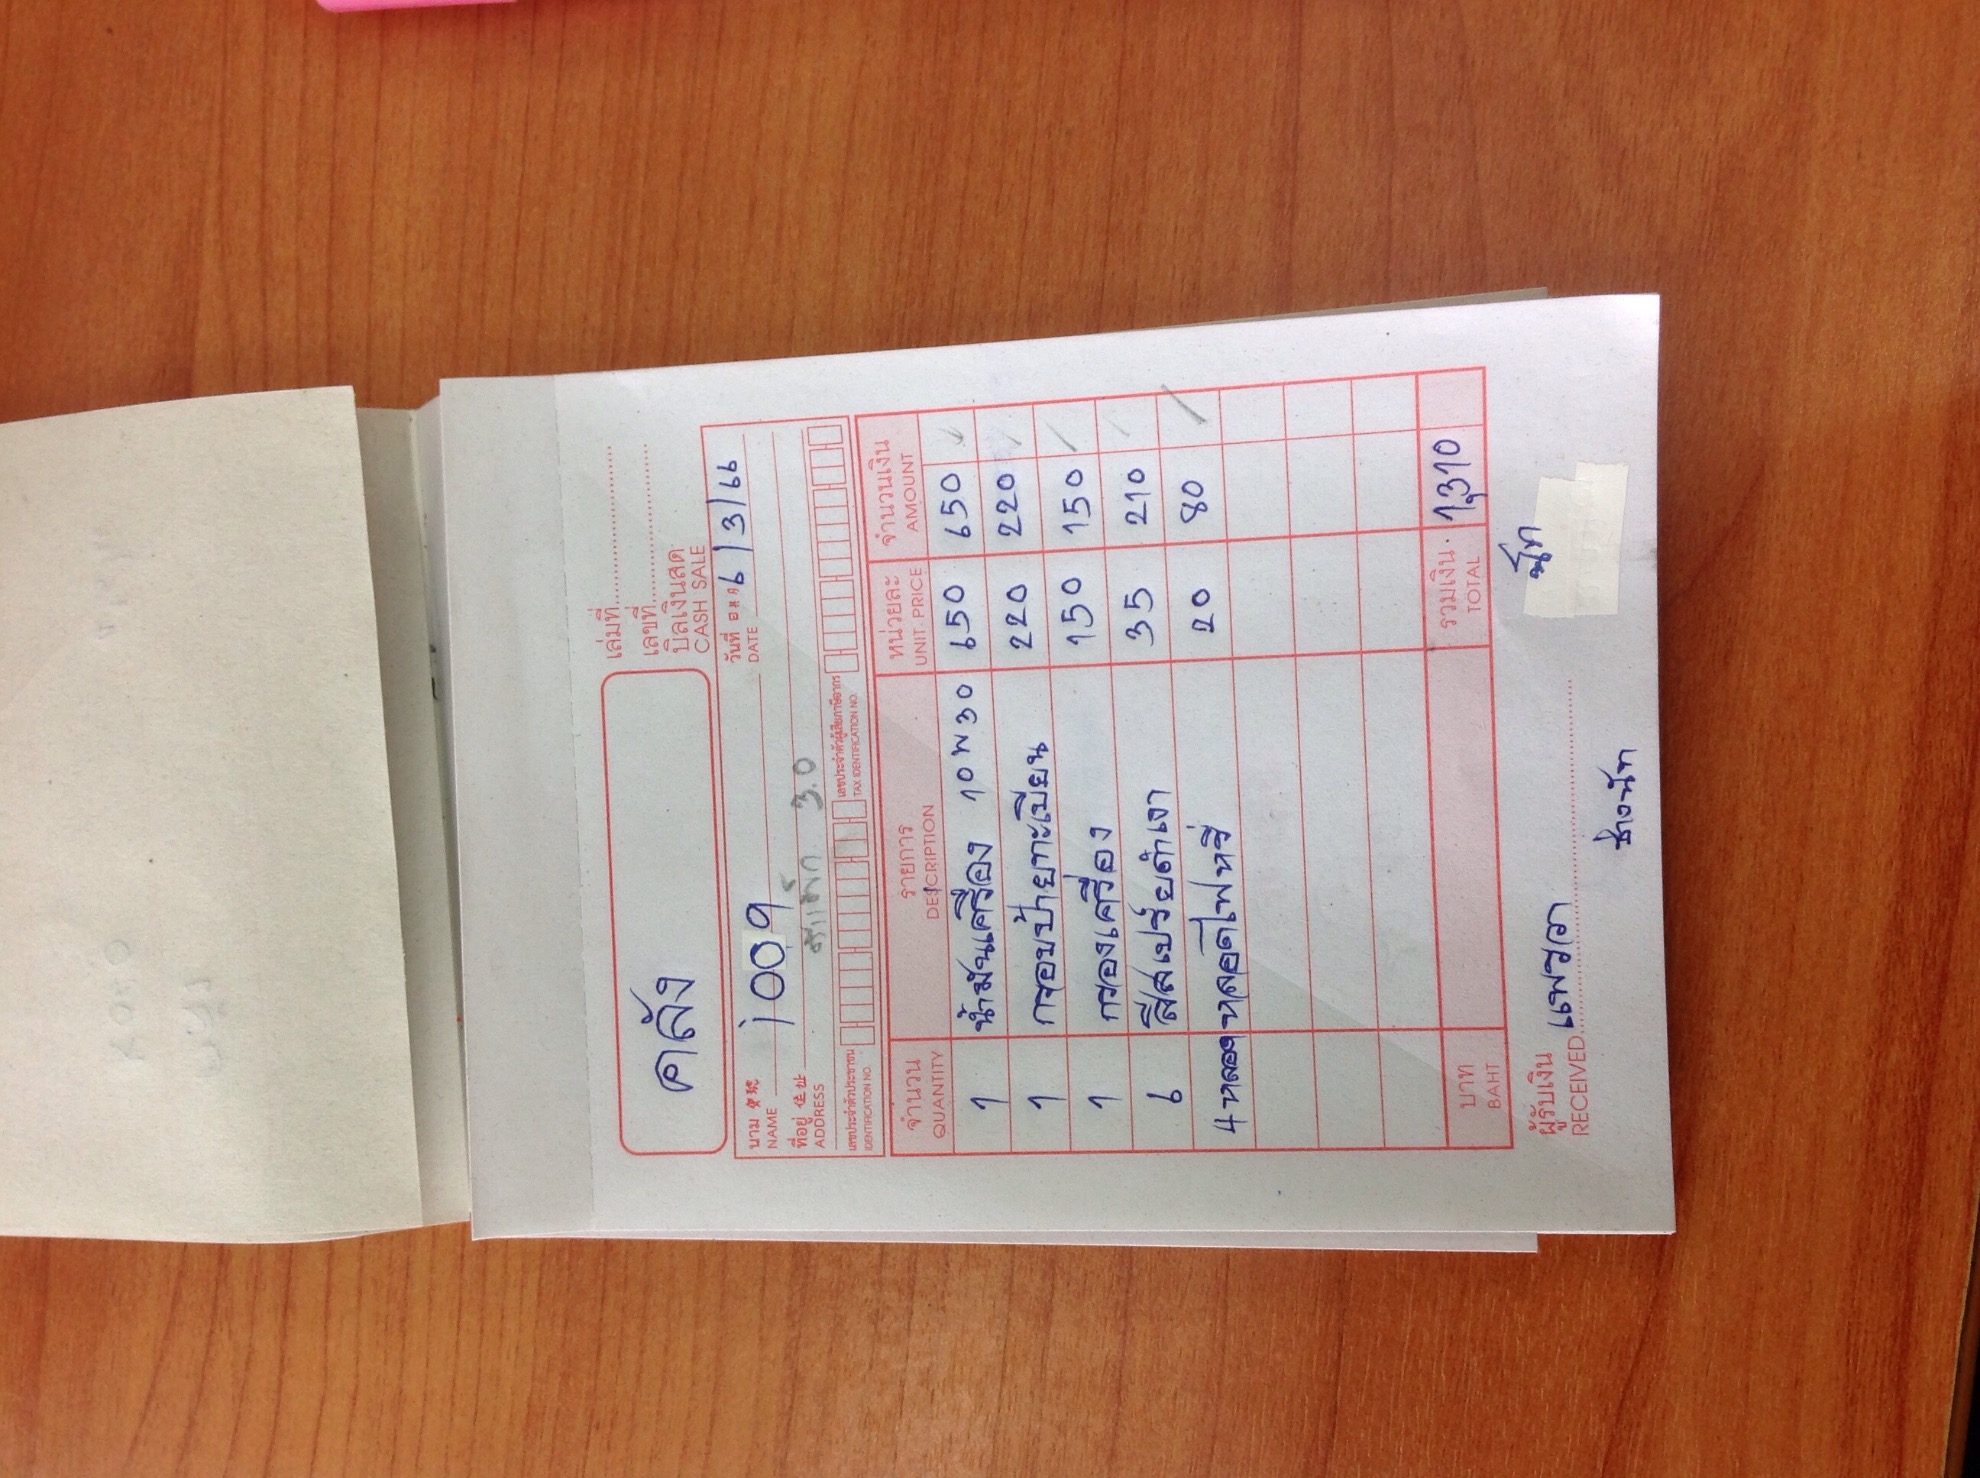 เล่มที่
เลขที่
คลัง
บิลเงินสด
CASH SALE
นาม
NAME
1009
วันที่
DATE
6/3/66
ที่อยู่
ADDRESS
3.0
เลขประจำตัวประชาชน
IDENTIFICATION NO.
เลขประจำตัวผู้เสียภาษีอากร
TAX IDENTIFICATION NO.
จำนวน รายการ หน่วยละ จำนวนเงิน
QUANTITY DESCRIPTION UNIT PRICE AMOUNT
1 น้ำมันเครื่อง 10W30 650 650
1 กรอบป้ายทะเบียน 220 220
1 กรองเครื่อง 150 150
6 สีสเปรย์ดำเงา 35 210
4 หลอด หลอดไฟหรี่ 20 80
บาท รวมเงิน 1,310
BAHT TOTAL
ผู้รับเงิน
RECEIVED แพรวา
ช่างนัท